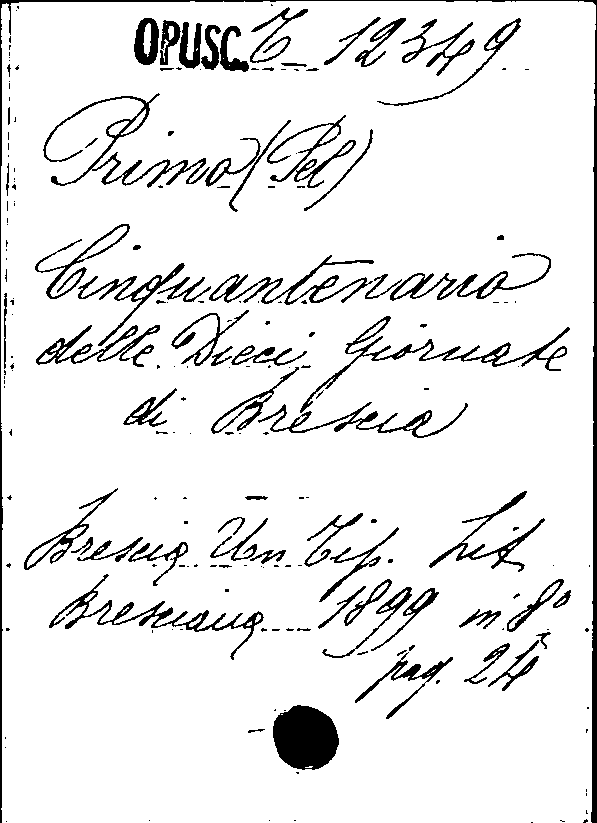 OPUSC. C 12349
Primo (Pel)
Cinquantenario
delle Dieci Giornate
di Brescia
Brescia Un Tip. Lit
Bresciana 1899 in 8°
pag. 24